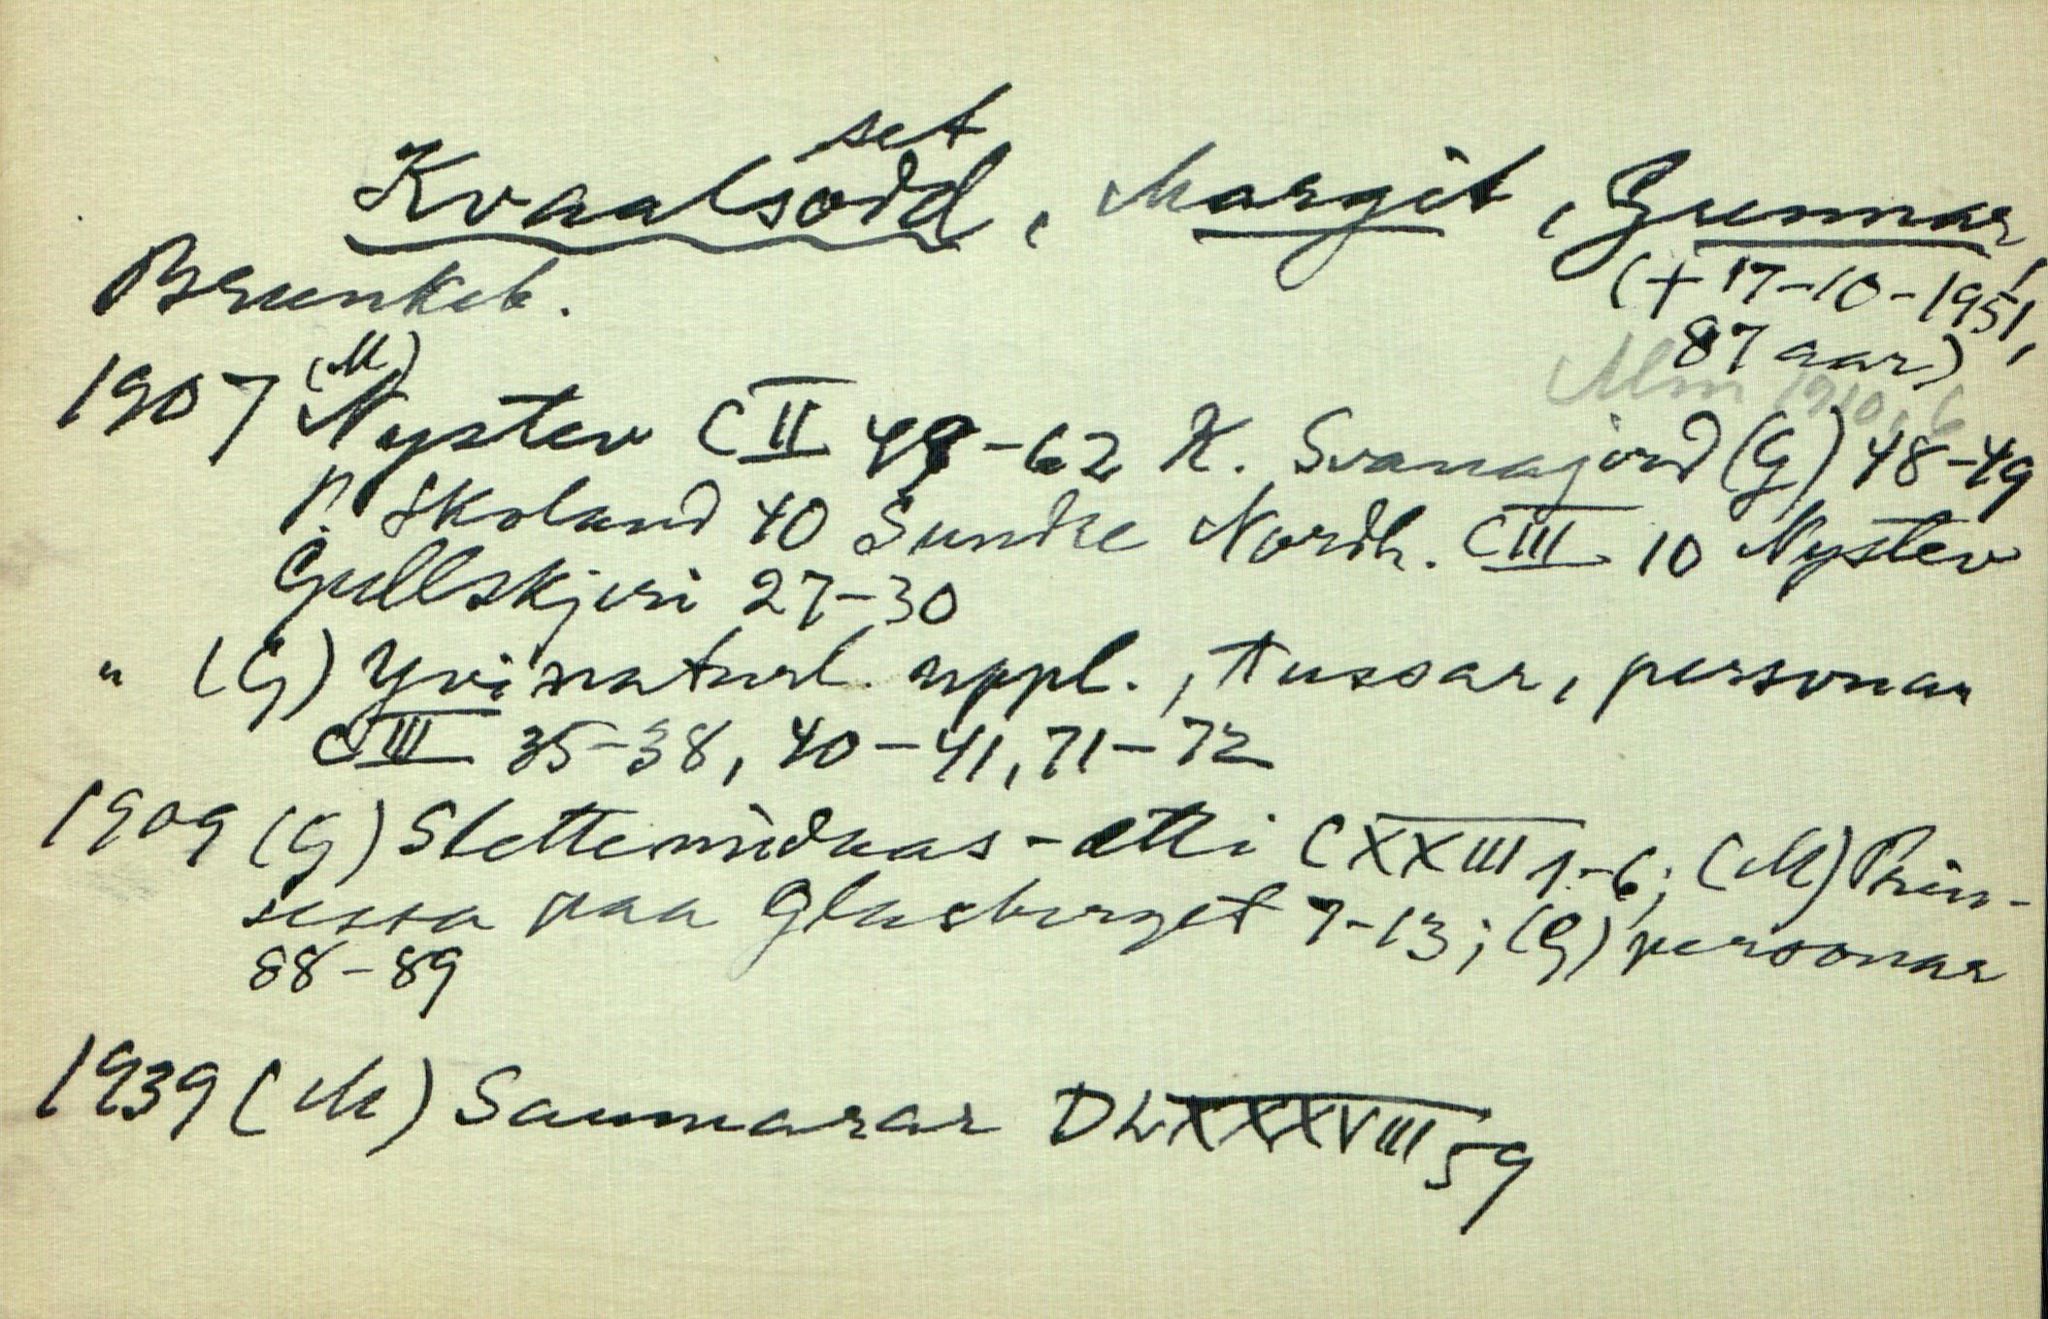 set
Kvaalsodd, Margit, Gunnar,
Brunkeb. (+ 17-10-1951,
87 aar)
(M)
1907 Nystev CII 49-62 K. Svanajord (G) 48-49
P. Skoland 40 Sundre Nordh. CIII 10 Nystev
Gullskjeri 27-30
" (G) Yvinaturl. uppl., Tussar, personar
CIII 35-38, 40-41, 71-72
1909 (G) Slettemidaas-ætti CXXIII 1-6; (M) Prin-
sessa paa Glasberget 7-13; (G) personar
88-89
1939 (M) Saumarar DLXXXVIII 59